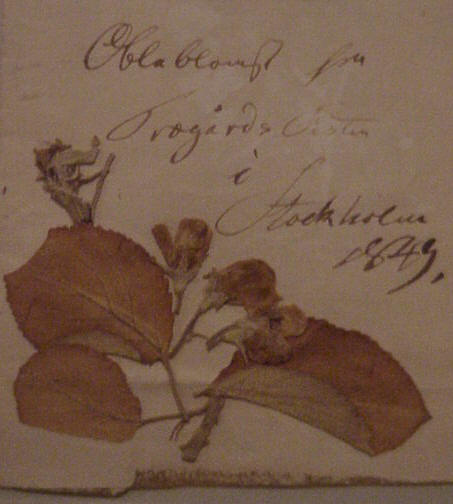 Æbleblomst fra
Trægårds
i
Stockholm
1849.